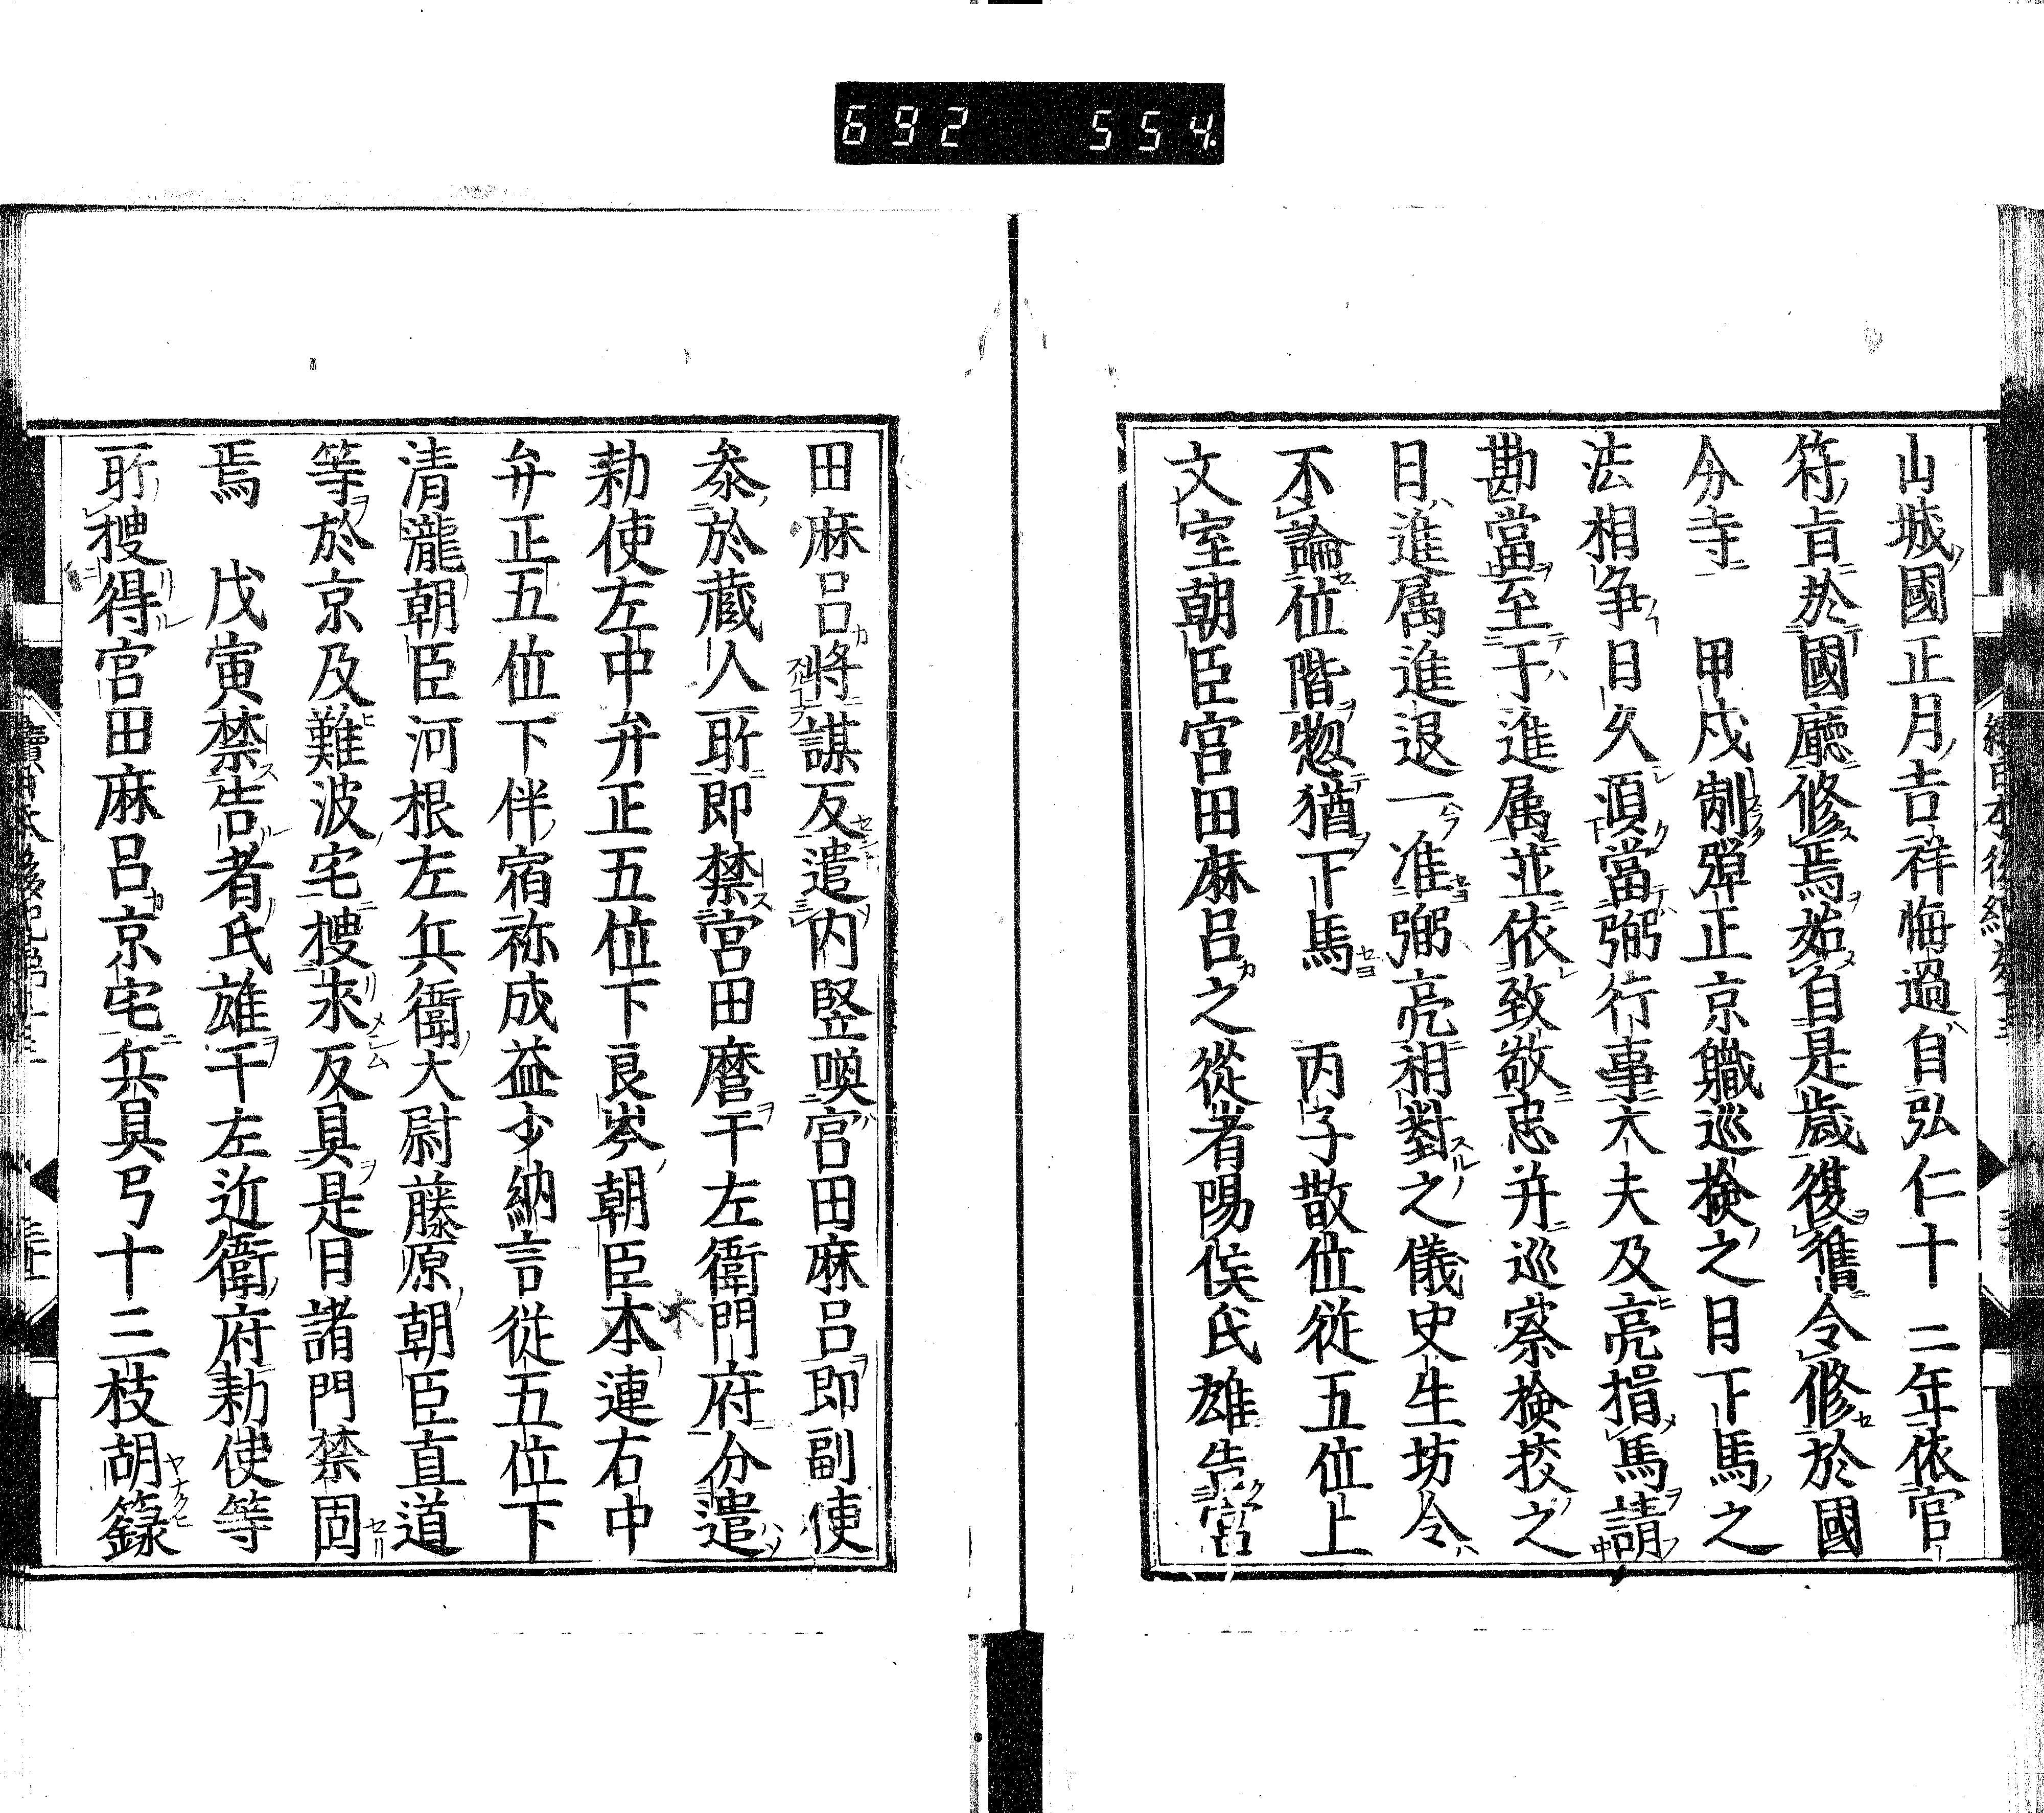 692 554
山城國正月吉祥悔過自弘仁十二年依官
符旨於國廳修焉始自是歳復舊令修於國
分寺 甲戌制彈正京職巡検之日下馬之
法相争日久須當弼行事大夫及亮揖馬請
勘當至于進属並依致敬忠并巡察検挍之
日進属進退一准弼亮相對之儀史生坊令
不論位階惣猶下馬 丙子散位從五位上
文室朝臣宮田麻呂之從者陽侯氏雄告宮
田麻呂將謀反遣内竪喚宮田麻呂即副使
参於蔵人所即禁宮田麿于左衛門府分遣
勅使左中弁正五位下良岑朝臣木連右中
弁正五位下伴宿祢成益少納言從五位下
清瀧朝臣河根左兵衛大尉藤原朝臣直道
等於京及難波宅捜求反具是日諸門禁固
焉 戊寅禁告者氏雄于左近衛府勅使等
所捜得宮田麻呂京宅兵具弓十三枝胡籙